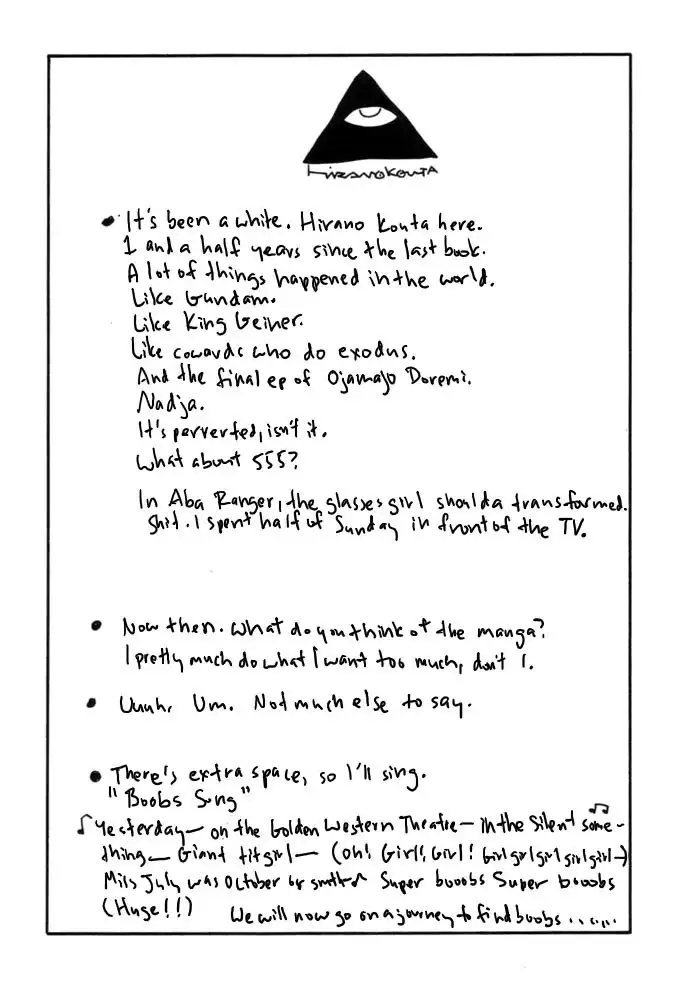 HIRANOKOUTA
• It's been a while. Hirano Kouta here.
1 and a half years since the last book.
A lot of things happened in the world.
Like Gundam.
Like King Geiner.
Like cowards who do exodus.
And the final ep of Ojamajo Doremi.
Nadja.
It's perverted, isn't it.
What about 555?
In Aba Ranger, the glasses girl shoulda transformed.
Shit. I spent half of Sunday in front of the TV.
• Now then. What do you think of the manga?
I pretty much do what I want too much, don't I.
• Uuuh, Um. Not much else to say.
• There's extra space, so I'll sing.
"Boobs Song"
♪ Yesterday— on the Golden Western Theatre— in the Silent some-
thing— Giant tit girl— (Oh! Girl! Girl! Girl girl girl girl girl—)
Miss July was October or smth♪ Super booobs Super booobs
(Huge!!) We will now go on a journey to find boobs ......